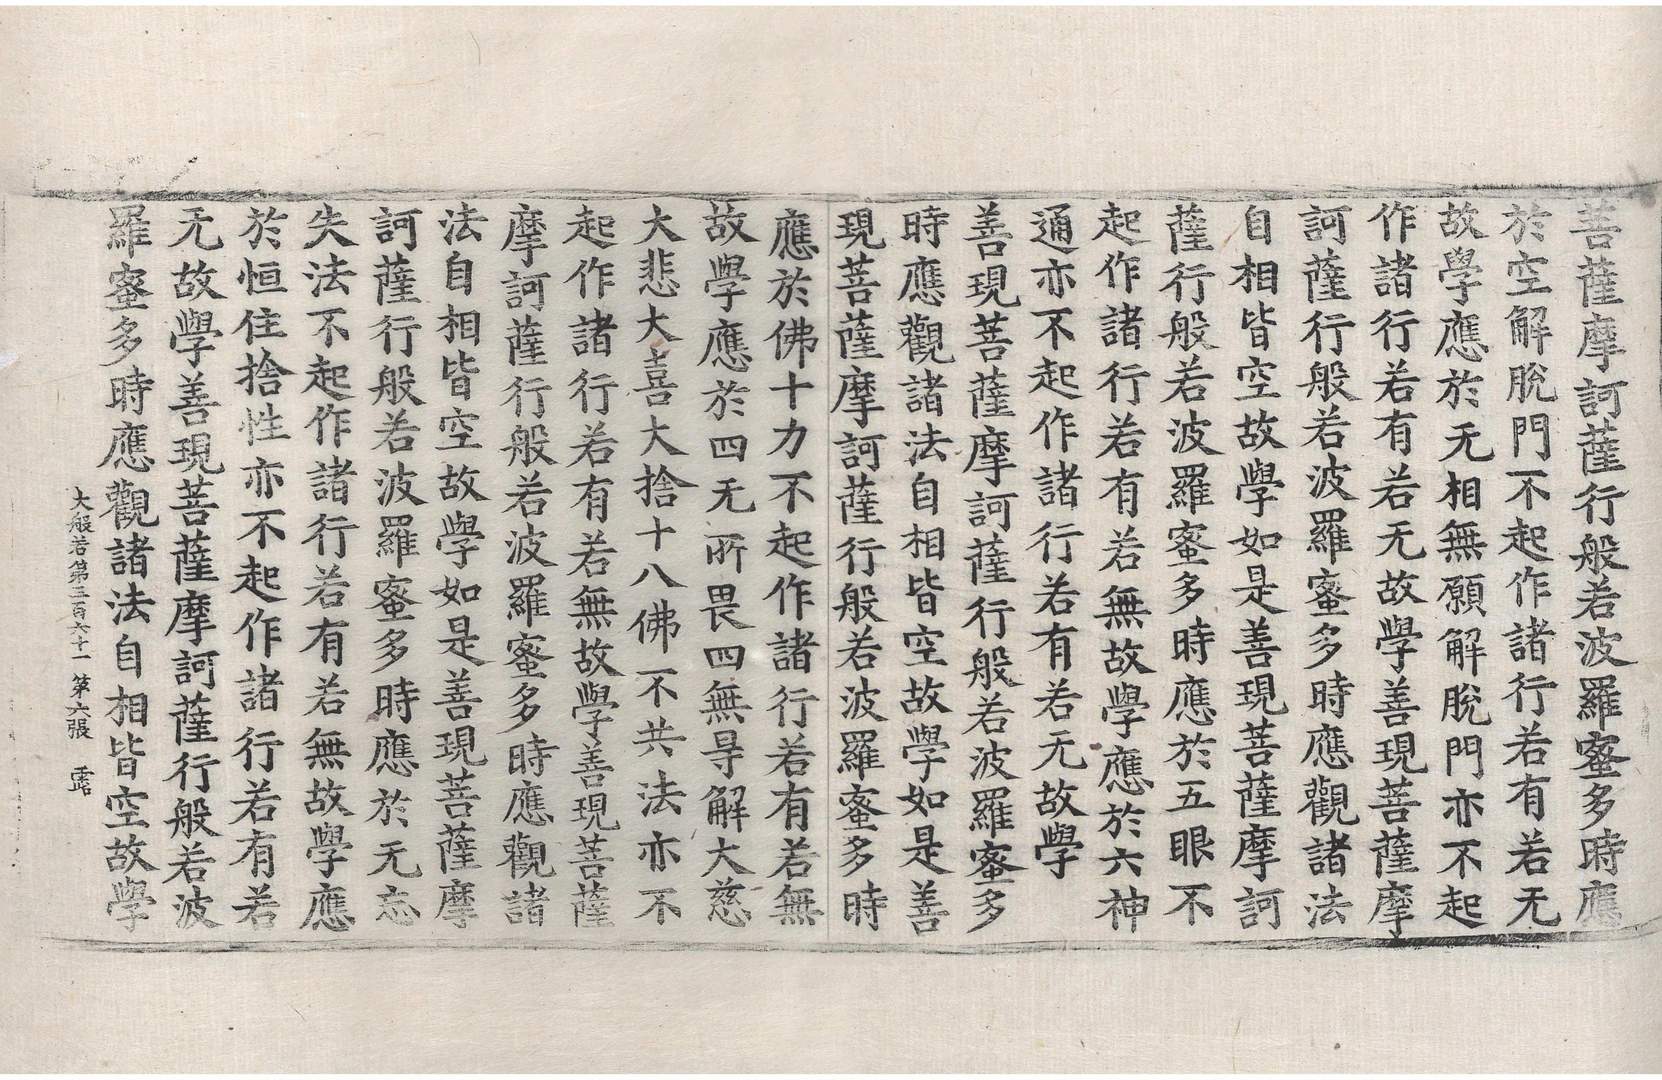 菩薩摩訶薩行般若波羅蜜多時應
於空解脫門不起作諸行若有若无
故學應於无相無願解脫門亦不起
作諸行若有若无故學善現菩薩摩
訶薩行般若波羅蜜多時應觀諸法
自相皆空故學如是善現菩薩摩訶
薩行般若波羅蜜多時應於五眼不
起作諸行若有若無故學應於六神
通亦不起作諸行若有若无故學
善現菩薩摩訶薩行般若波羅蜜多
時應觀諸法自相皆空故學如是善
現菩薩摩訶薩行般若波羅蜜多時
應於佛十力不起作諸行若有若無
故學應於四无所畏四無㝵解大慈
大悲大喜大捨十八佛不共法亦不
起作諸行若有若無故學善現菩薩
摩訶薩行般若波羅蜜多時應觀諸
法自相皆空故學如是善現菩薩摩
訶薩行般若波羅蜜多時應於无忘
失法不起作諸行若有若無故學應
於恒住捨性亦不起作諸行若有若
无故學善現菩薩摩訶薩行般若波
羅蜜多時應觀諸法自相皆空故學
大般若第三百六十一 第六張 露